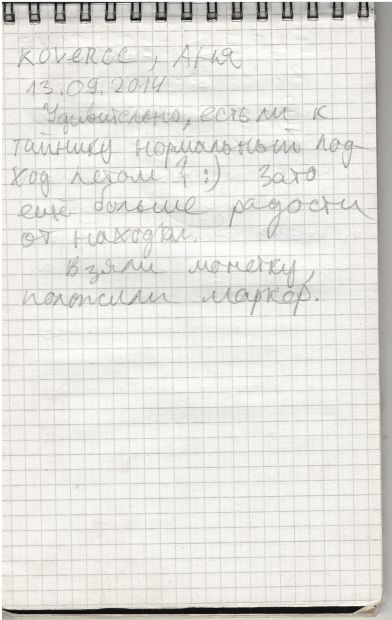 Koverce, Аня
13.09.2014
Удивительно, есть ли к
тайнику нормальный под-
ход летом? :) Зато
ещё больше радости
от находки.
Взяли монетку,
положили маркер.